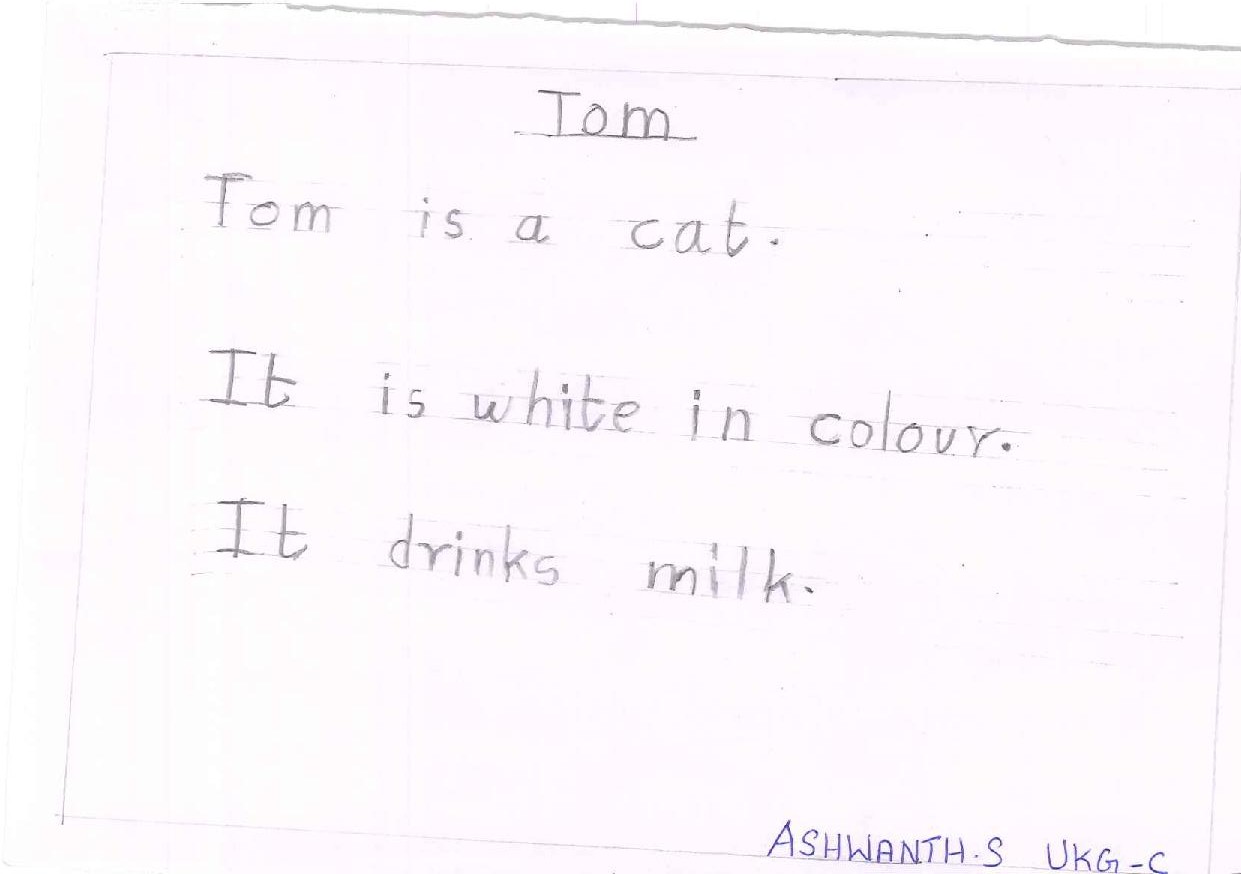 Tom
Tom is a cat.
It is white in colour.
It drinks milk.
ASHWANTH.S UKG-C